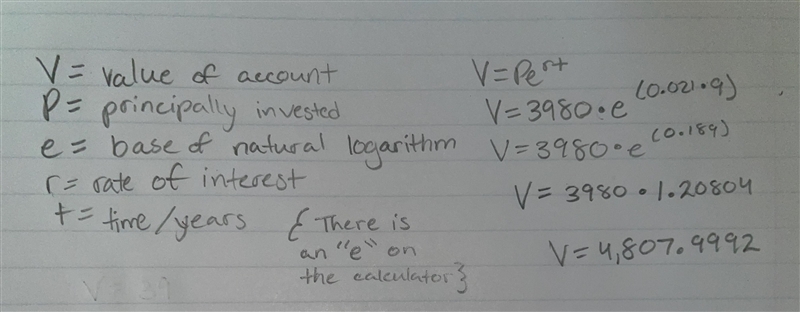 V = value of account
P = principally invested
e = base of natural logarithm
r = rate of interest
t = time/years
{There is
an "e" on
the calculator}
V = 39
V=Pe^rt
V=3980•e^(0.021•9)
V=3980•e^(0.189)
V=3980•1.20804
V=4,807.9992